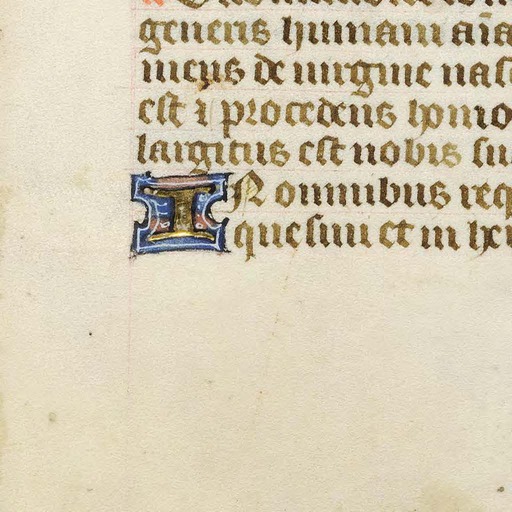 generis humani aīa
niens de virgine nasc
est ⁊ procedens homo
largitus est nobis su
IN omnibus req
quesivi et in her